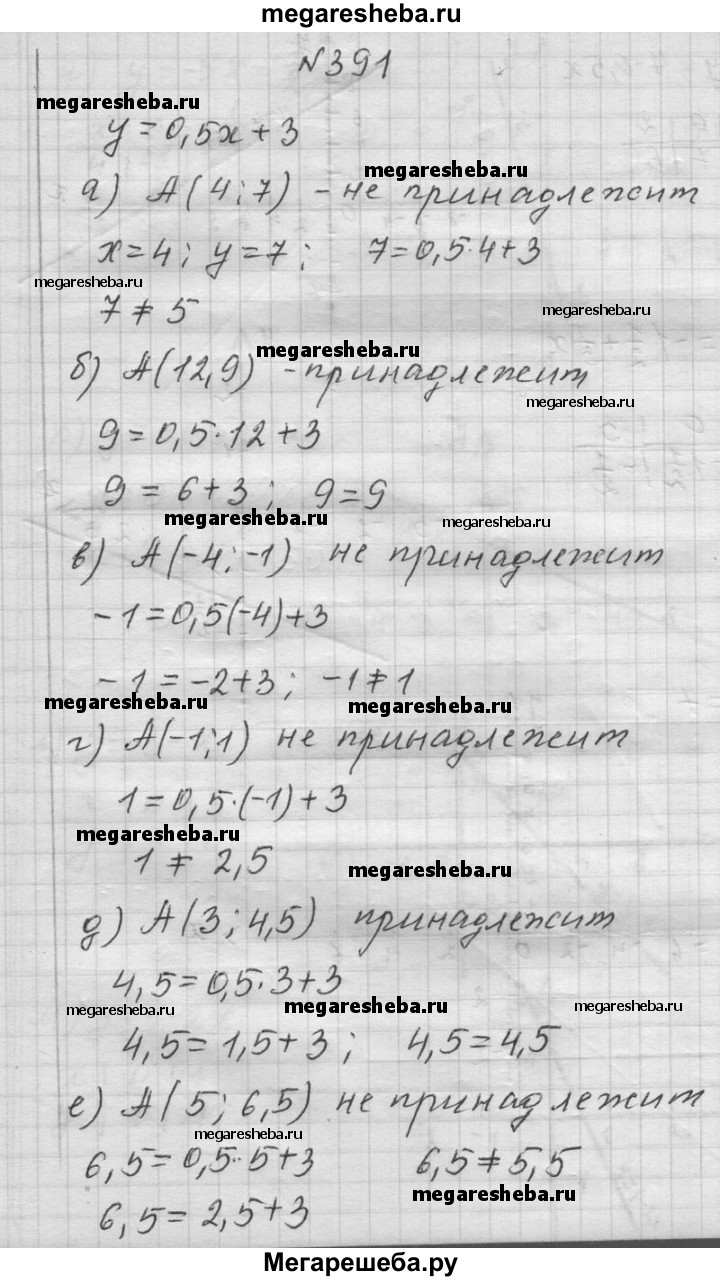 megaresheba.ru
№391
megaresheba.ru
y=0,5x+3
megaresheba.ru
а) А(4;7) - не принадлежит
x=4; y=7; 7=0,5·4+3
megaresheba.ru
7≠5
megaresheba.ru
megaresheba.ru
б) А(12,9) - принадлежит
megaresheba.ru
9=0,5·12+3
9=6+3; 9=9
megaresheba.ru
megaresheba.ru
в) А(-4;-1) не принадлежит
-1=0,5(-4)+3
-1=-2+3; -1≠1
megaresheba.ru
megaresheba.ru
г) А(-1;1) не принадлежит
1=0,5·(-1)+3
megaresheba.ru
1≠2,5
megaresheba.ru
д) А(3;4,5) принадлежит
4,5=0,5·3+3
megaresheba.ru
megaresheba.ru
megaresheba.ru
4,5=1,5+3; 4,5=4,5
е) А(5;6,5) не принадлежит
megaresheba.ru
6,5=0,5·5+3 6,5≠5,5
megaresheba.ru
6,5=2,5+3
Мегарешеба.ру